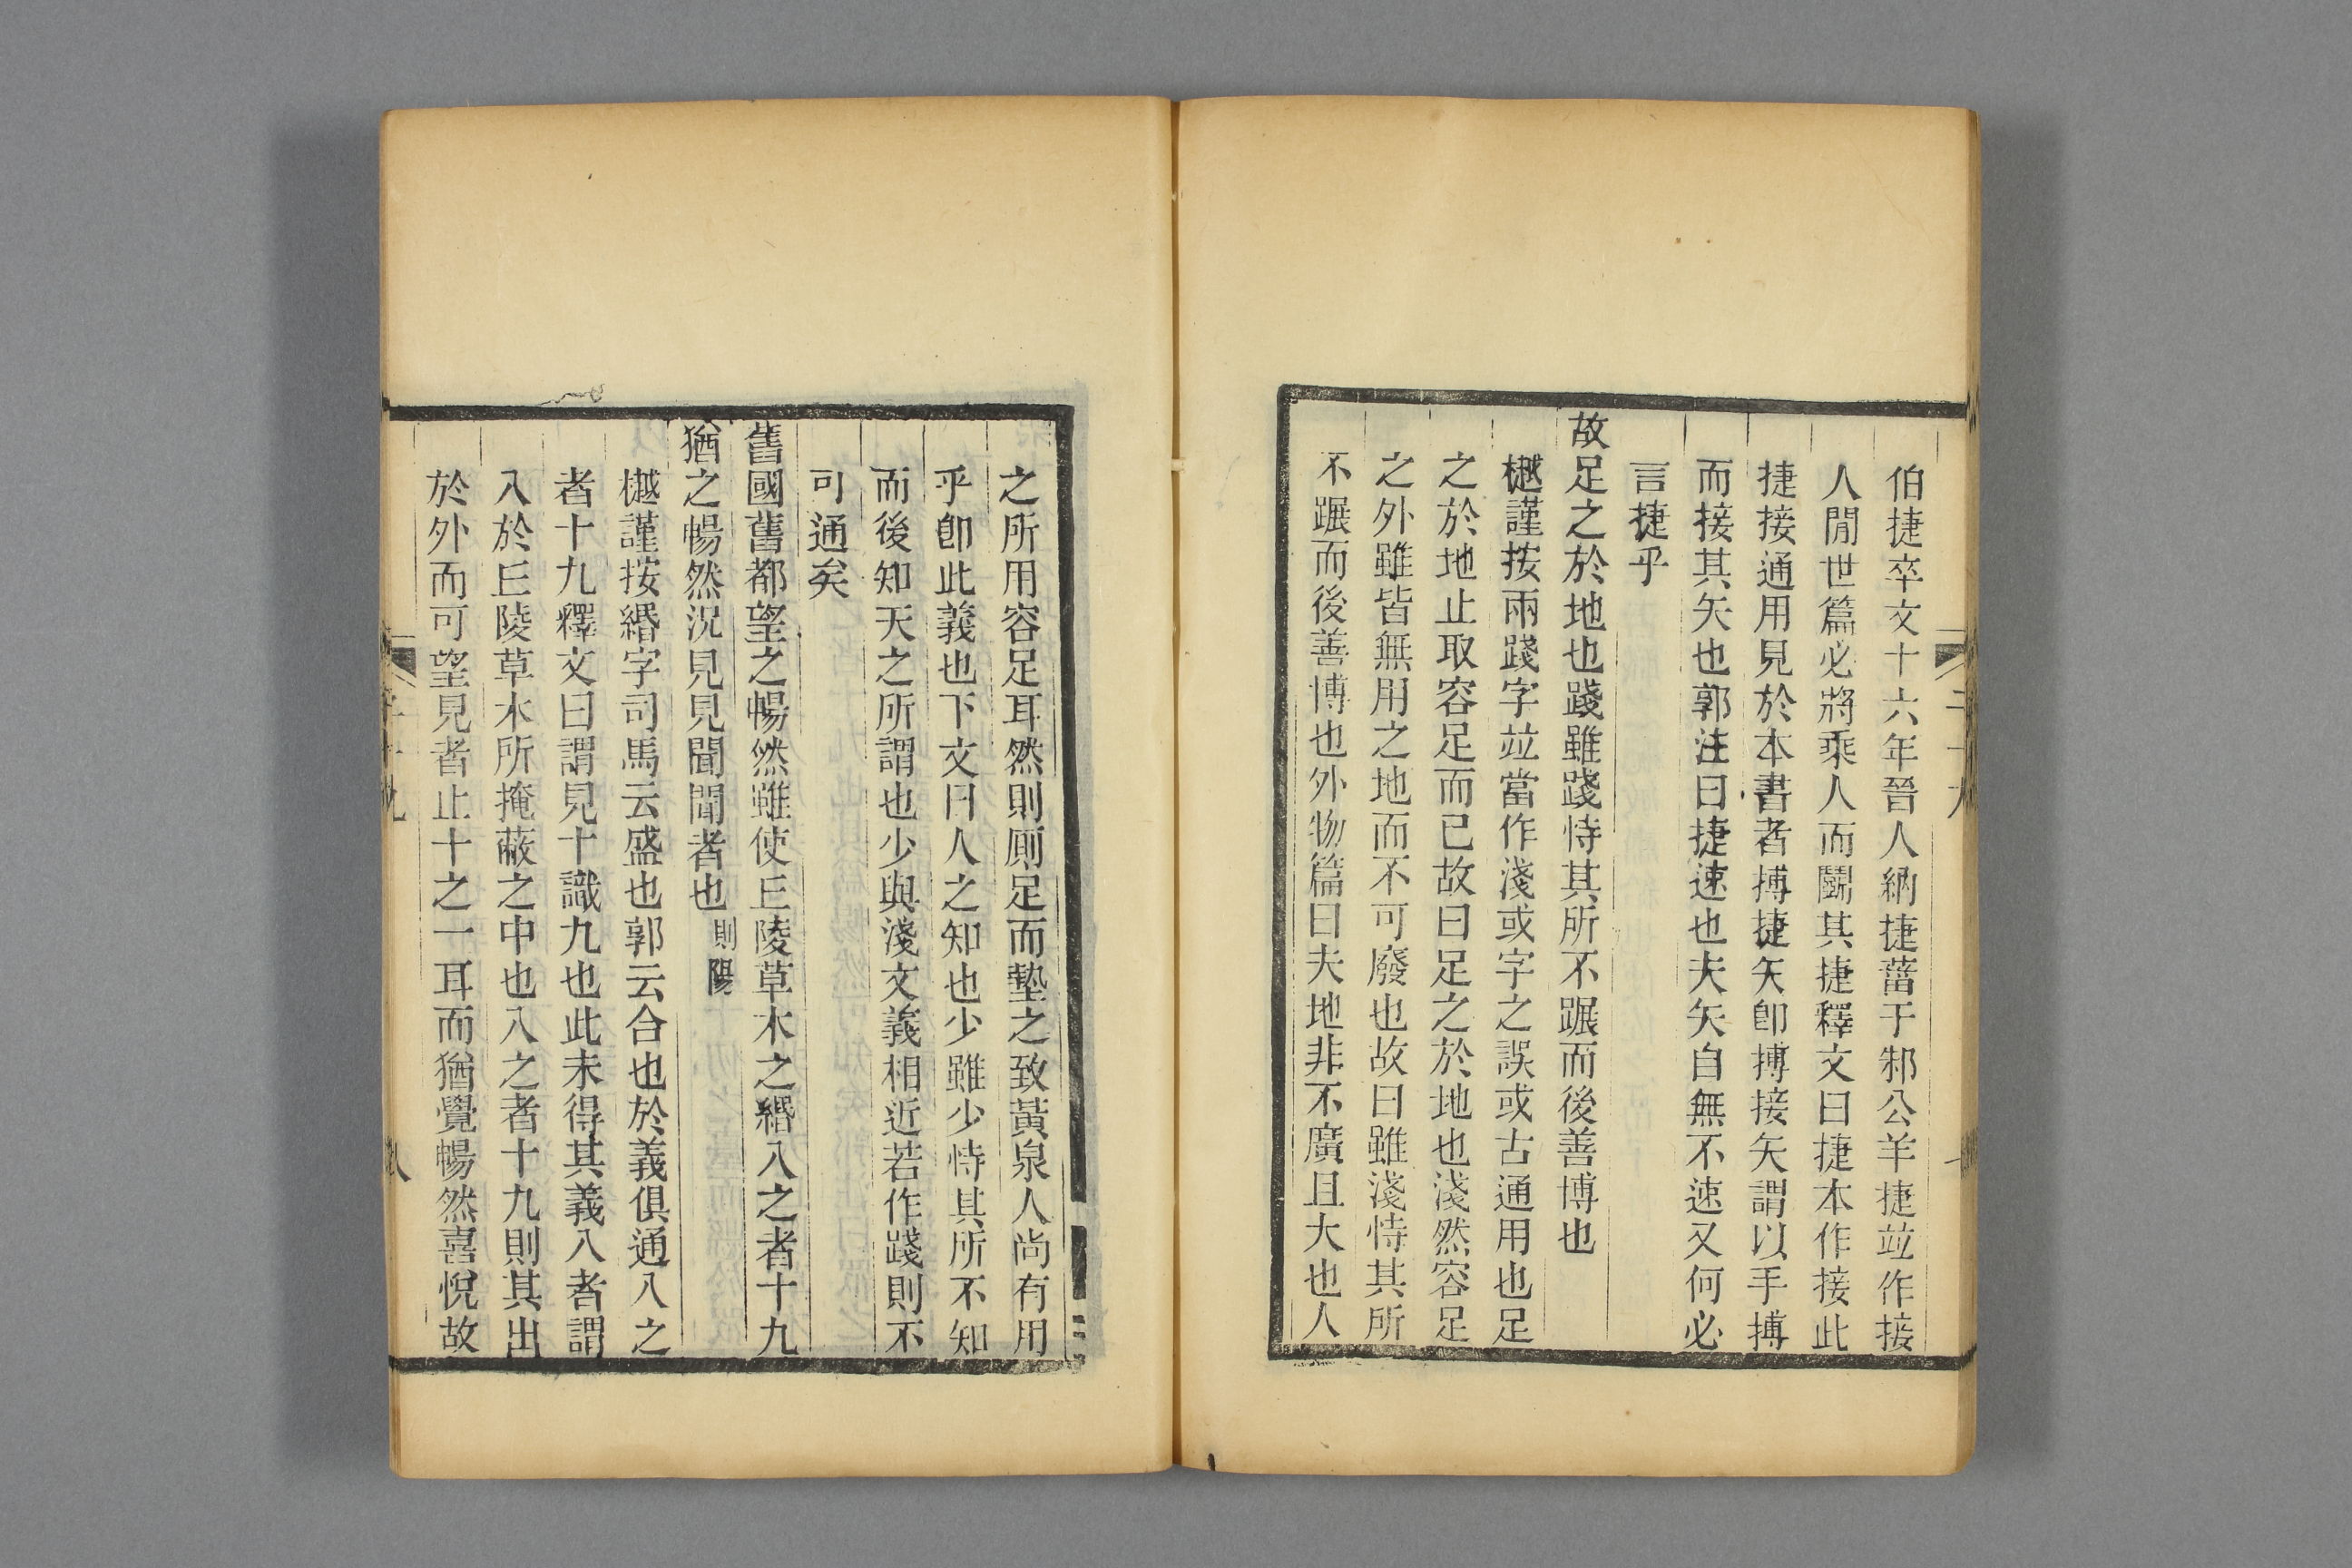 伯捷卒文十六年晉人納捷菑于邾公羊捷竝作接
人閒世篇必將乘人而鬭其捷釋文曰捷本作接此
捷接通用見於本書者搏捷矢卽搏接矢謂以手搏
而接其矢也郭注曰捷速也夫矢自無不速又何必
言捷乎
故足之於地也踐雖踐恃其所不蹍而後善博也
樾謹按兩踐字竝當作淺或字之誤或古通用也足
之於地止取容足而已故曰足之於地也淺然容足
之外雖皆無用之地而不可廢也故曰雖淺恃其所
不蹍而後善博也外物篇曰夫地非不廣且大也人
之所用容足耳然則厠足而墊之致黃泉人尚有用
乎卽此義也下文曰人之知也少雖少恃其所不知
而後知天之所謂也少與淺文義相近若作踐則不
可通矣
舊國舊都望之暢然雖使丘陵草木之緡入之者十九
猶之暢然況見見聞聞者也 則陽
樾謹按緡字司馬云盛也郭云合也於義俱通入之
者十九釋文曰謂見十識九也此未得其義入者謂
入於丘陵草木所掩蔽之中也入之者十九則其出
於外而可望見者止十之一耳而猶覺暢然喜悅故